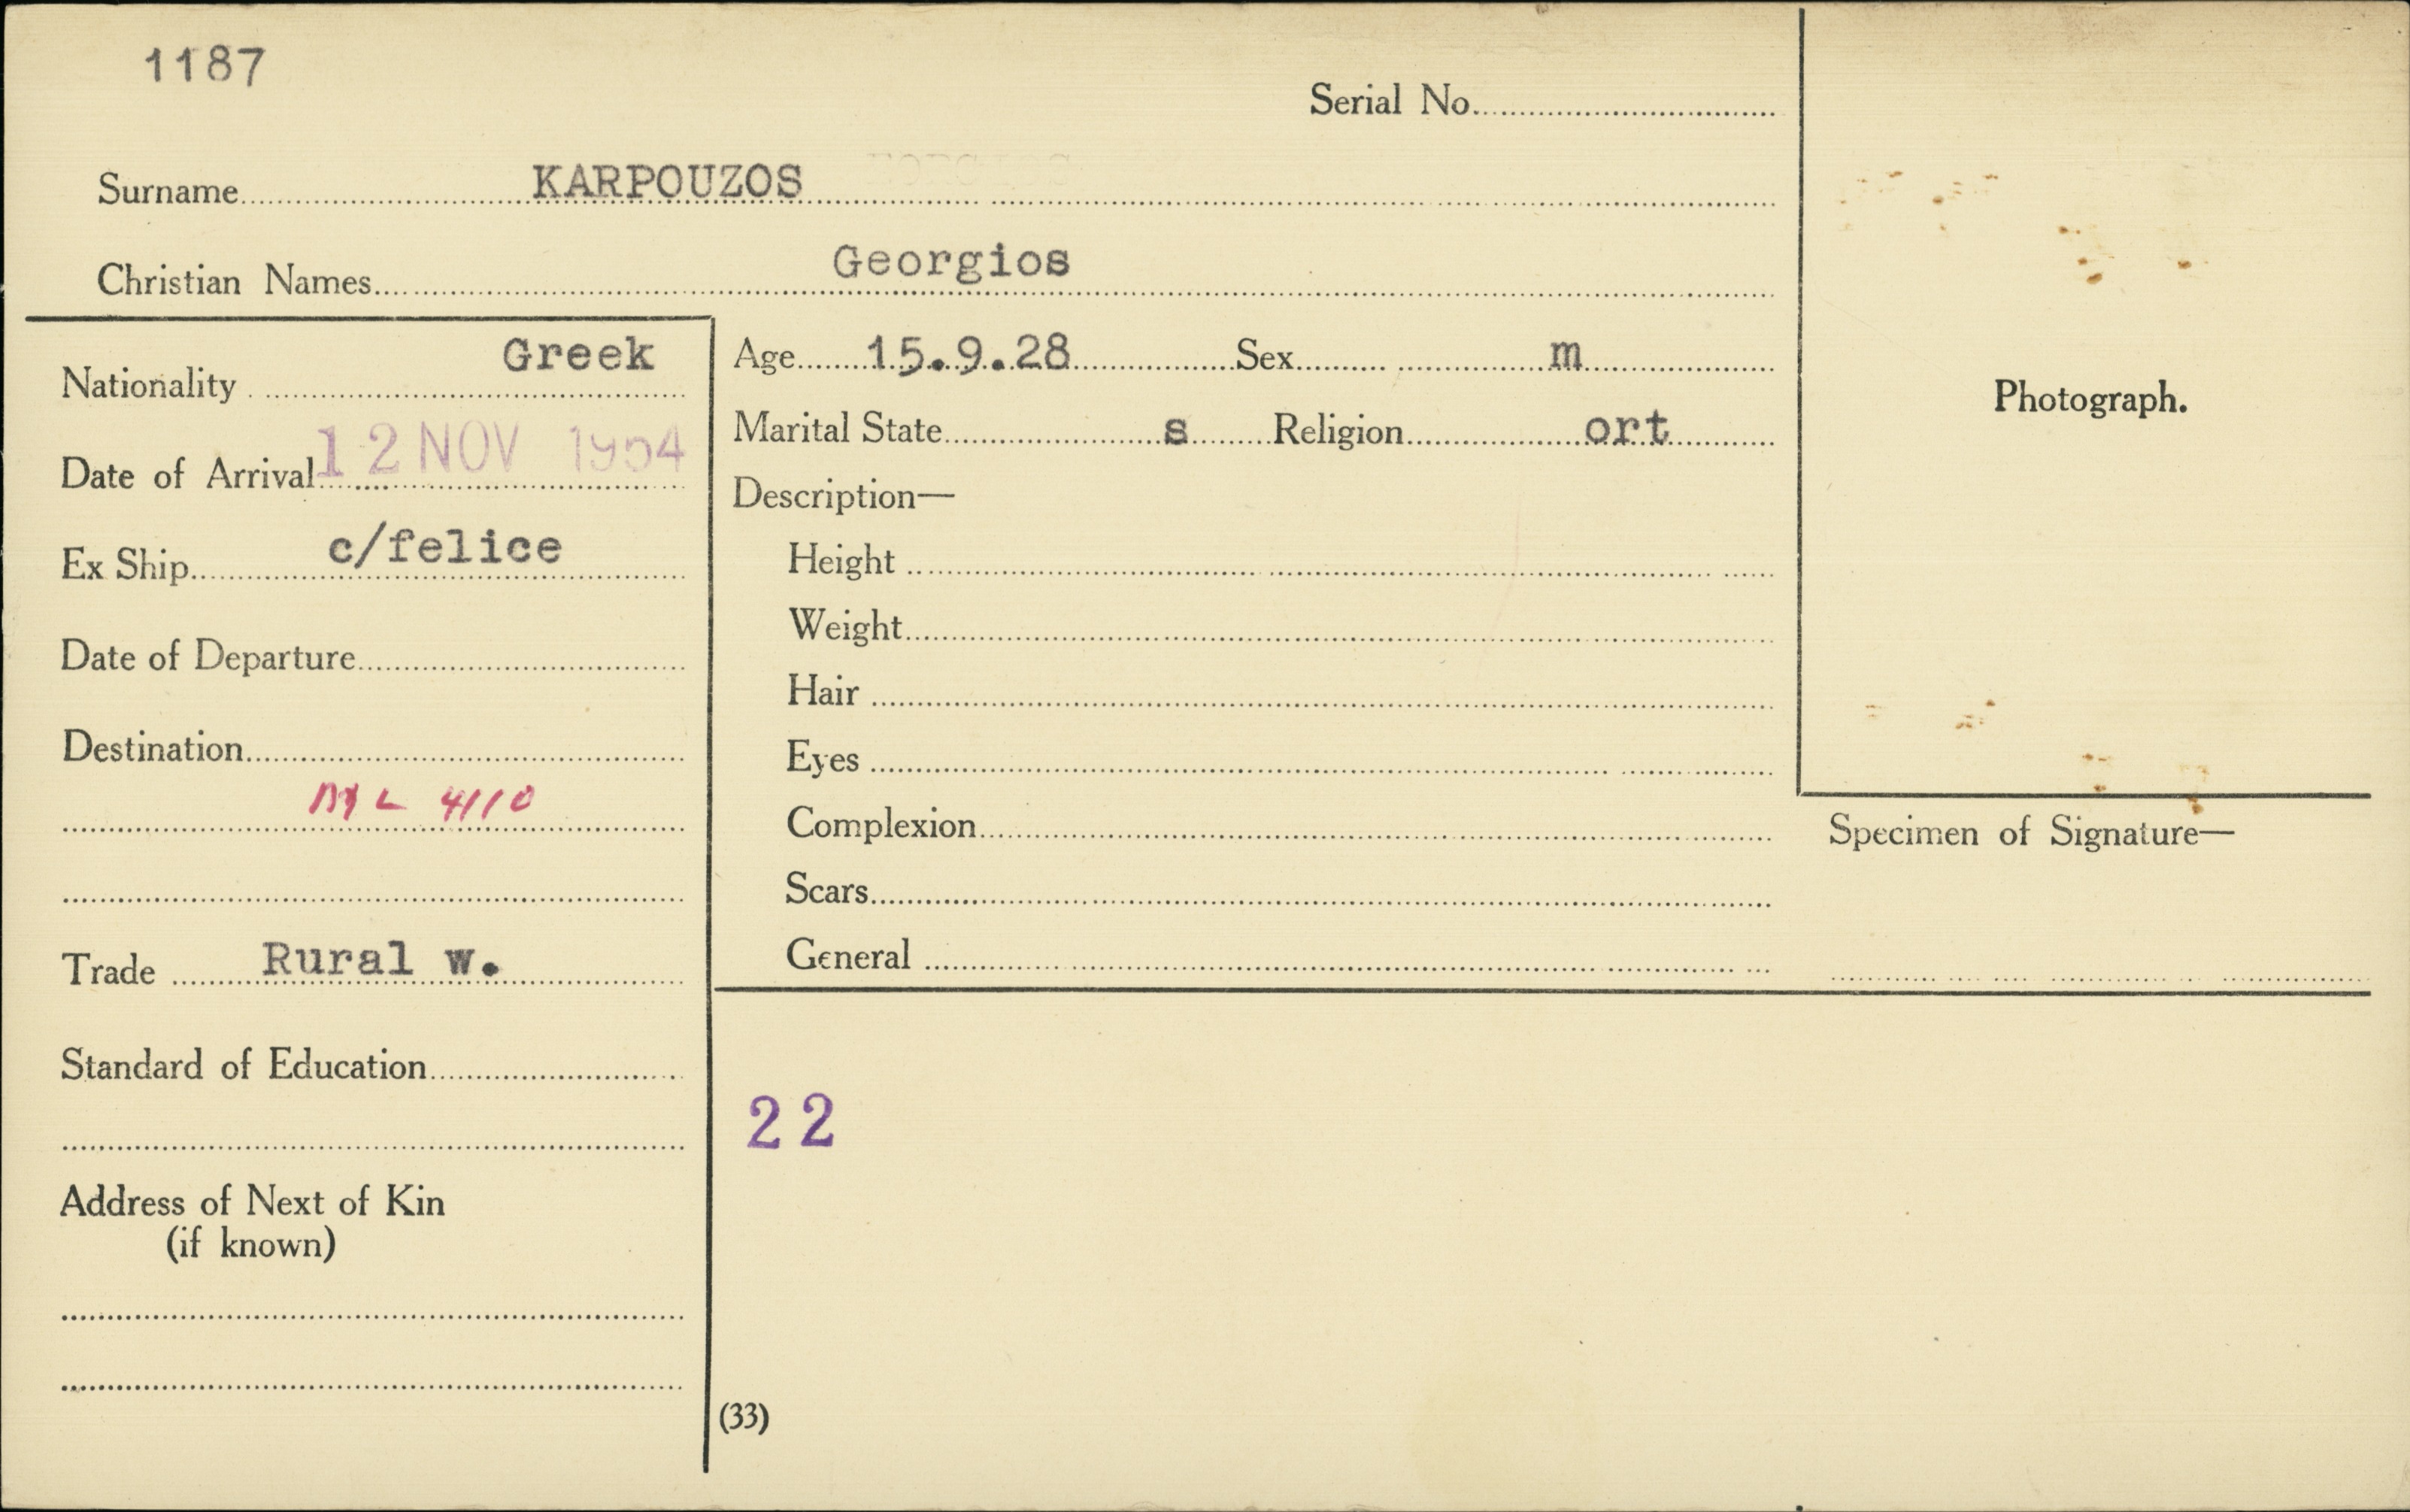 1187
Serial No.
Surname KARPOUZOS
Christian Names Georgios
Nationality Greek
Date of Arrival 12 NOV 1954
Ex Ship c/felice
Date of Departure
Destination
4110
Trade Rural w.
Standard of Education
Address of Next of Kin
(if known)
Age 15.9.28 Sex m
Marital State s Religion ort
Description—
Height
Weight
Hair
Eyes
Complexion
Scars
General
22
(33)
Photograph.
Specimen of Signature—